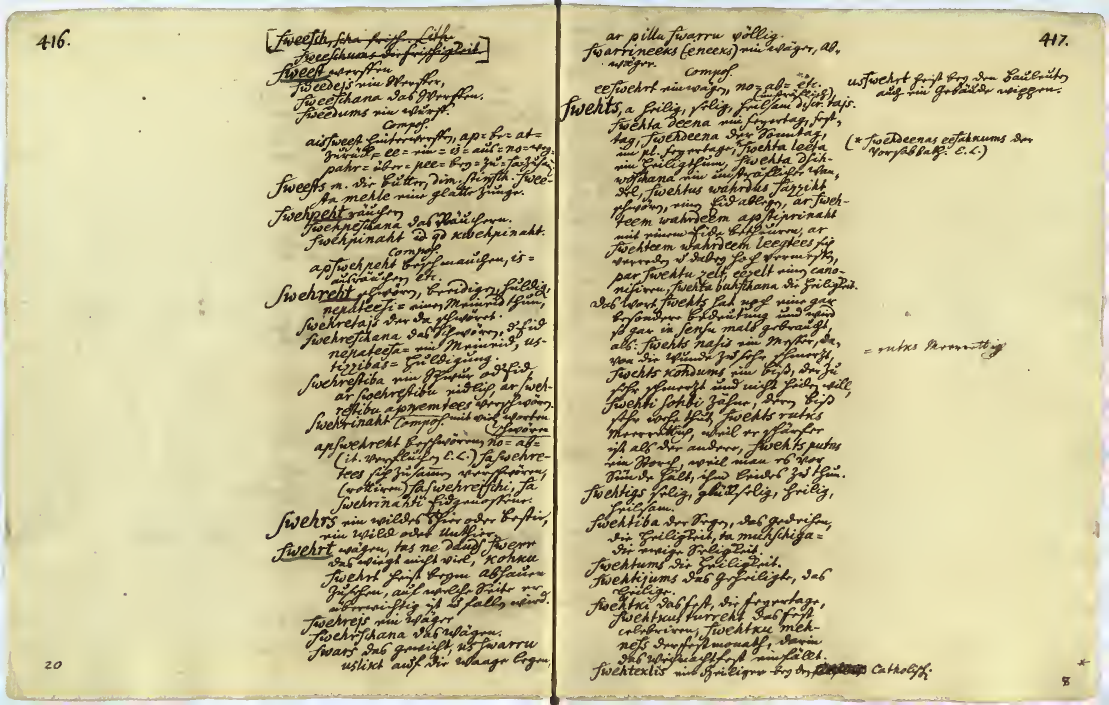 416.
[sweesch, scha frisch. Lith.
sweeschums die frischigkeit]
sweest werffen
sweedejs ein Werffer,
sweeschana das Werffen.
sweedums ein wurff.
Compos.
aissweest hinterwerffen, ap= be= at=
zurück= ee= ein= is= aus= no= weg=
pahr= über= pee= bey= zu= sa= zusam
sweests m. die butter, dim.
mehle eine glatte zunge.
swehpeht räuchern
swehpeschana das Räuchern.
swehpinaht id qd kwehpinaht.
Compos.
apswehpeht beschmauchen, is=
ausräuchen etc.
swehreht schwören, beeidigen, huldig,
nepateesi= einen Meineid thun,
swehretajs der da schwöret.
swehreschana das Schwören, d Eid
nepateesa= ein Meineid, us-
tizzibas= Huldigung.
swehrestiba ein Schwur od Eid,
ar swehrestibu eidlich, ar sweh-
restibu apnemtees verschwören.
swehrinaht mit viel worten
Compos. schwören
apswehreht beschwören, no= ab=
(it. verfluchen E. L.) saswehre-
tees sich zusamen verschwören,
(rottiren) saswehrejschi, sa
swehrinahti Eidgenossene.
swehrs ein wildes Thier oder bestie,
ein wild oder Unthier
swehrt wägen, tas ne daudf swerr
das wiegt nicht viel, kohku
swehrt heist beym abhauen
zusehen, auf welche Seite er
überwichtig ist u fallen wird.
swehrejs ein wäger
swehrschana das wägen.
swars das gewicht, us swarru
uslikt auf die Waage legen,
20
417.
ar pillu swarru völlig.
swarrineeks (eneeks) ein wäger, ab-
wäger.
Compos.
eeswehrt einwägen, no= ab= etc.
usswehrt heist bey den bauleuten
auch ein Gebäude wippen.
swehts, a heilig, selig, heilsam
swehta deena ein feyertag, fest-
tag, swehdeena der Sonntag,
(* swehdeenas eesahkums der
Vorsabbath. E. L.)
im pl. feyertage, swehta leeta
ein heiligthum, swehta dsih-
woschana ein unsträflicher wan-
del, swehtus wahrdus sazziht
schwören, einen Eid ablegen, ar sweh-
teem wahrdeem apstiprinaht
mit einem Eide betheuren, ar
swehteem wahrdeem leegtees sich
verreden u dabey hoch vermessen,
par swehtu zelt, eezelt einen cano-
nisiren, swehta buhschana die heiligkeit.
Das wort swehts hat noch eine gar
besondere bedeutung und wird
so gar in sensu malo gebraucht,
als: swehts nasis ein Messer, da-
von die wunde zu sehr schmerzt,
swehts kohdums ein biß, der zu
sehr schmerzt und nicht heilen will,
swehti sohbi Zähne, deren biß
sehr weh thut, swehts rutks
= rutks Meerrettig
Meerrettich, weil er schärfer
ist als der andere, swehts putns
ein Storch weil man es vor
Sünde hält, ihm leides zu thun.
swehtigs selig, glückselig, heilig,
heilsam.
swehtiba der Segen, das gedeihen,
die Heiligkeit, ta muhschiga=
die ewige Seligkeit.
swehtums die Heiligkeit.
swehtijums das Geheiligte, das
heilige.
swehtki das fest, die feyertage,
swehtkus turreht das fest
celebriren, swehtku meh-
nefs der festmonath, darin
das weihnachtfest einfällt.
swehteklis ein heiliger bey den Catholisch:
8